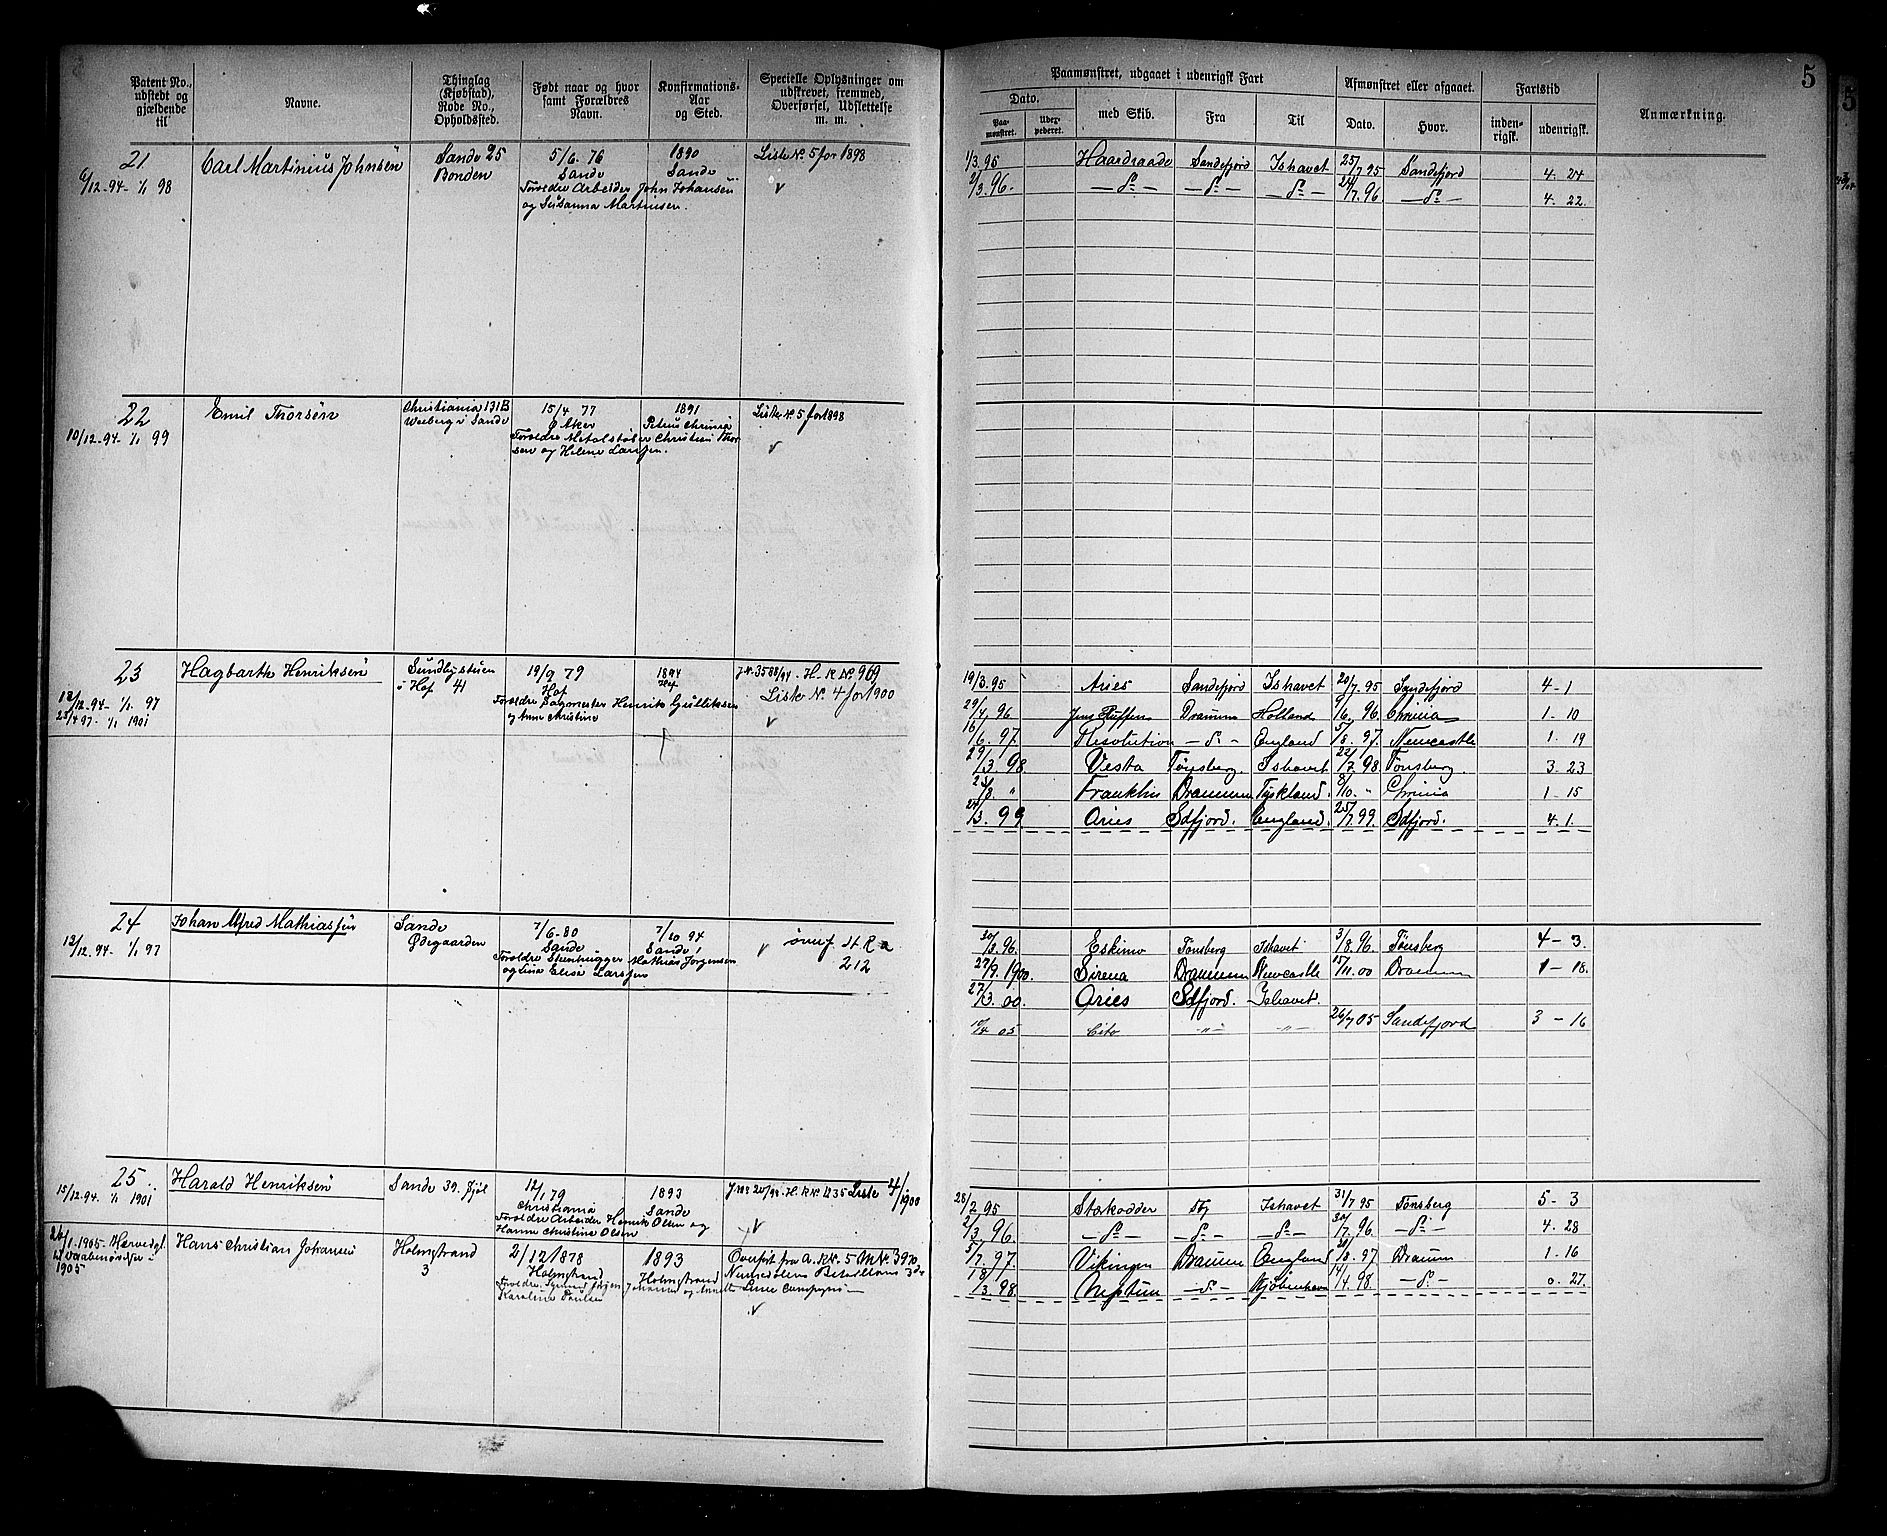 5
Patent No., udstedt og gjældende til
Navne.
Thinglag (Kjøbstad), Rode No., Opholdssted.
Født naar og hvor samt Forældres Navn.
Konfirmations- Aar og Sted.
Specielle Oplysninger om udskrevet, fremmed, Overførsel, Udslettelse m. m.
Paamønstret, udgaaet i udenrigsk Fart
Afmønstret eller afgaaet.
Fartstid
Anmærkning.
Dato.
Paamønstret.
med Skib.
Fra
Til
Dato.
Hvor.
indenrigsk.
udenrigsk.
21 Carl Martinius Johnsen Sande 25 5/6. 76 1890 Liste No 5 for 1898
6/12. 94 - 1/1 98 Bonden Sande Sande
Forældre Arbeider John Johansen
og Susanna Martinsen.
1/3. 95 Haardraade Sandefjord Ishavet 25/7 95 Sandefjord 4. 24
2/3. 96. — do — — do — — do — 24/7. 96 — do — 4. 22.
22 Emil Thorsen Christiania 131B 15/4 77 1891 Liste No 5 for 1898
10/12 - 94 - 1/1 99 i Sande Aker Petrus Chrania
Forældre Metalstøber Christian Thor
sen og Helene Larssen.
23 Hagbarth Henriksen i Hof 41 19/9 79 1894 J. No 3588/94 - H. R No 969
Hof Hof Liste No 4 for 1900
12/12. 94 - 1/1. 97
25/4 97. - 1/1 1901
Forældre Henrik Gulliksen
og Anne Christine
19/3. 95 Aries Sandefjord Ishavet 20/7. 95 Sandefjord 4 - 1
29/4. 96 Dramm Holland 9/6. 96. Chrania 1 - 10
16/6. 97. Resolution — do — England 5/8. 97. Newcastle 1. 19
29/3. 98. Vesta Tønsberg. Ishavet 22/7. 98 Tønsberg. 3. 23
Franklin Drammen Tyskland. 8/10. " Chrania 1 - 15
24/3. 99 Aries Sdfjord. England. 25/7. 99. Sdfjord. 4. 1.
24 Johan Alfred Mathiassen Sande 7/6 - 80 7/10 94 overf. H. R.
12/12. 94 - 1/1 97 Ødegaarden Sande Sande 212
Forældre Stenhugger Mathias Jørgensen
og Lina Elise Larssen
30/3. 96. Eskimo Tønsberg Ishavet 3/8. 96. Tønsberg 4 - 3.
27/9. 1900. Sirena Drammen Newcastle 15/11. 00 Drammen 1 - 18.
27/3. 00. Aries Sdfjord. Ishavet.
10/4 05 Cito — " — — " — 26/7 05 Sandefjord 3 - 16
25. Harald Henriksen Sande 39. Fjøl 12/1 79 1893 H. R No 1235 Liste 4/1900
15/12. 94. 1/1 1901 Christiania Sande
Forældre Arbeider Henrik Olsen og
Hanne Christine Olsen
28/2. 95 Stækodder Tbg Ishavet 31/7 95 Tønsberg 5 - 3
2/3. 96. — do — — do — — do — 30/7. 96. — do — 4. 28
5/7. 97. Vikingen Dramm England 20/8. 97. Dramm 1. 16
18/3. 98. Neptun — do — Kjøbenhavn 14/4. 98. — do — 0. 27.
26/1 - 1905 Hans Christian Johansen Holmstrand 3 2/12 1878 1893 Overført fra A. R No. 5 M No. 3970
1905 Holmstrand Holmstrand Bataillons 3die
Linie Compagni
Forældre
Karoline Paulsen